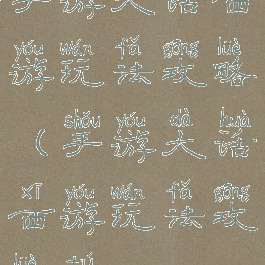 手游大话西
yóu wán fǎ gōng lüè
游玩法攻略
shǒu yóu dà huà
（手游大话
xī yóu wán fǎ gōng
西游玩法攻